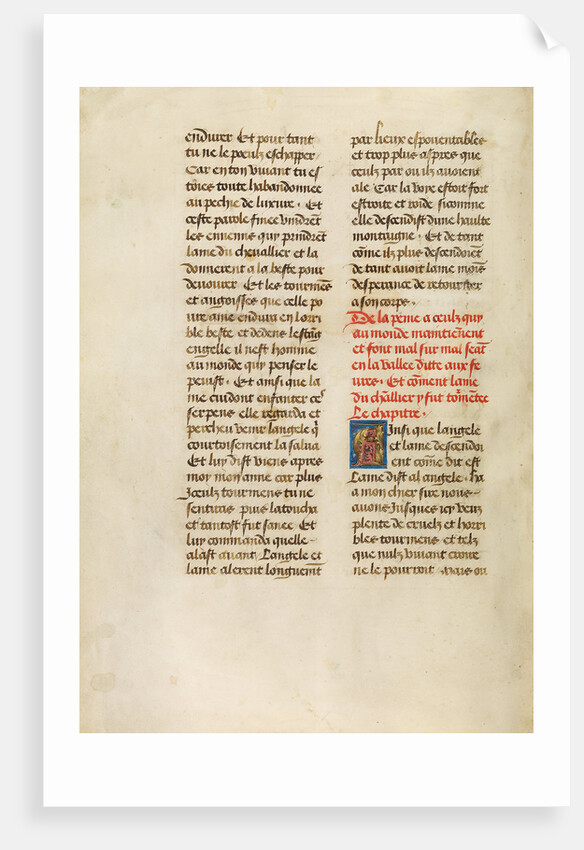 endurer Et pour tant
tu ne le poeulz eschapper
Car en ton vivant tu es
toute habandonnee
au pechie de luxure · Et
ceste parole finee vindrēt
les ennemis quy prindrēt
lame du chevallier et la
donnerent a la beste pour
devourer · Et les tourmens
et angoisses que celle po
vre ame endura en lorri
ble beste et dedens lestāg
engelle il nest homme
au monde quy penser le
peuist · Et ainsi que la
me cuidoit enfanter ces
serpens elle regarda et
percheu venir langele q̄
courtoisement la salua
Et luy dist viens apres
moy mon amie car plus
Iceulz tourmens tu ne
sentiras puis latoucha
et tantost fut sanee · Et
luy commanda quelle
alast avant Langele et
lame alerent longuemēt
par lieux espouentables
et trop plus aspres que
ceulz par ou ilz avoient
ale Car la voye estoit fort
estroite et roide sicomme
elle descendist dune haulte
montaigne · Et de tant
cōme ilz plus descendoiēt
de tant avoit lame moīs
desperance de retourner
a son corps ·
De la peine a ceulz quy
au monde maintiēnent
et font mal sur mal seāt
en la vallee ditte aux fe
vres · Et cōment lame
du chlīer y fut tormētee
Le chapitre ·
Ainsi que langele
et lame descendoi
ent cōme dit est
Lame dist al angele · ha
a mon chier sire nous
avons Jusques icy veus
plente de cruelz et horri
bles tourmens et telz
que nulz vivant croire
ne le pourroit mais ou